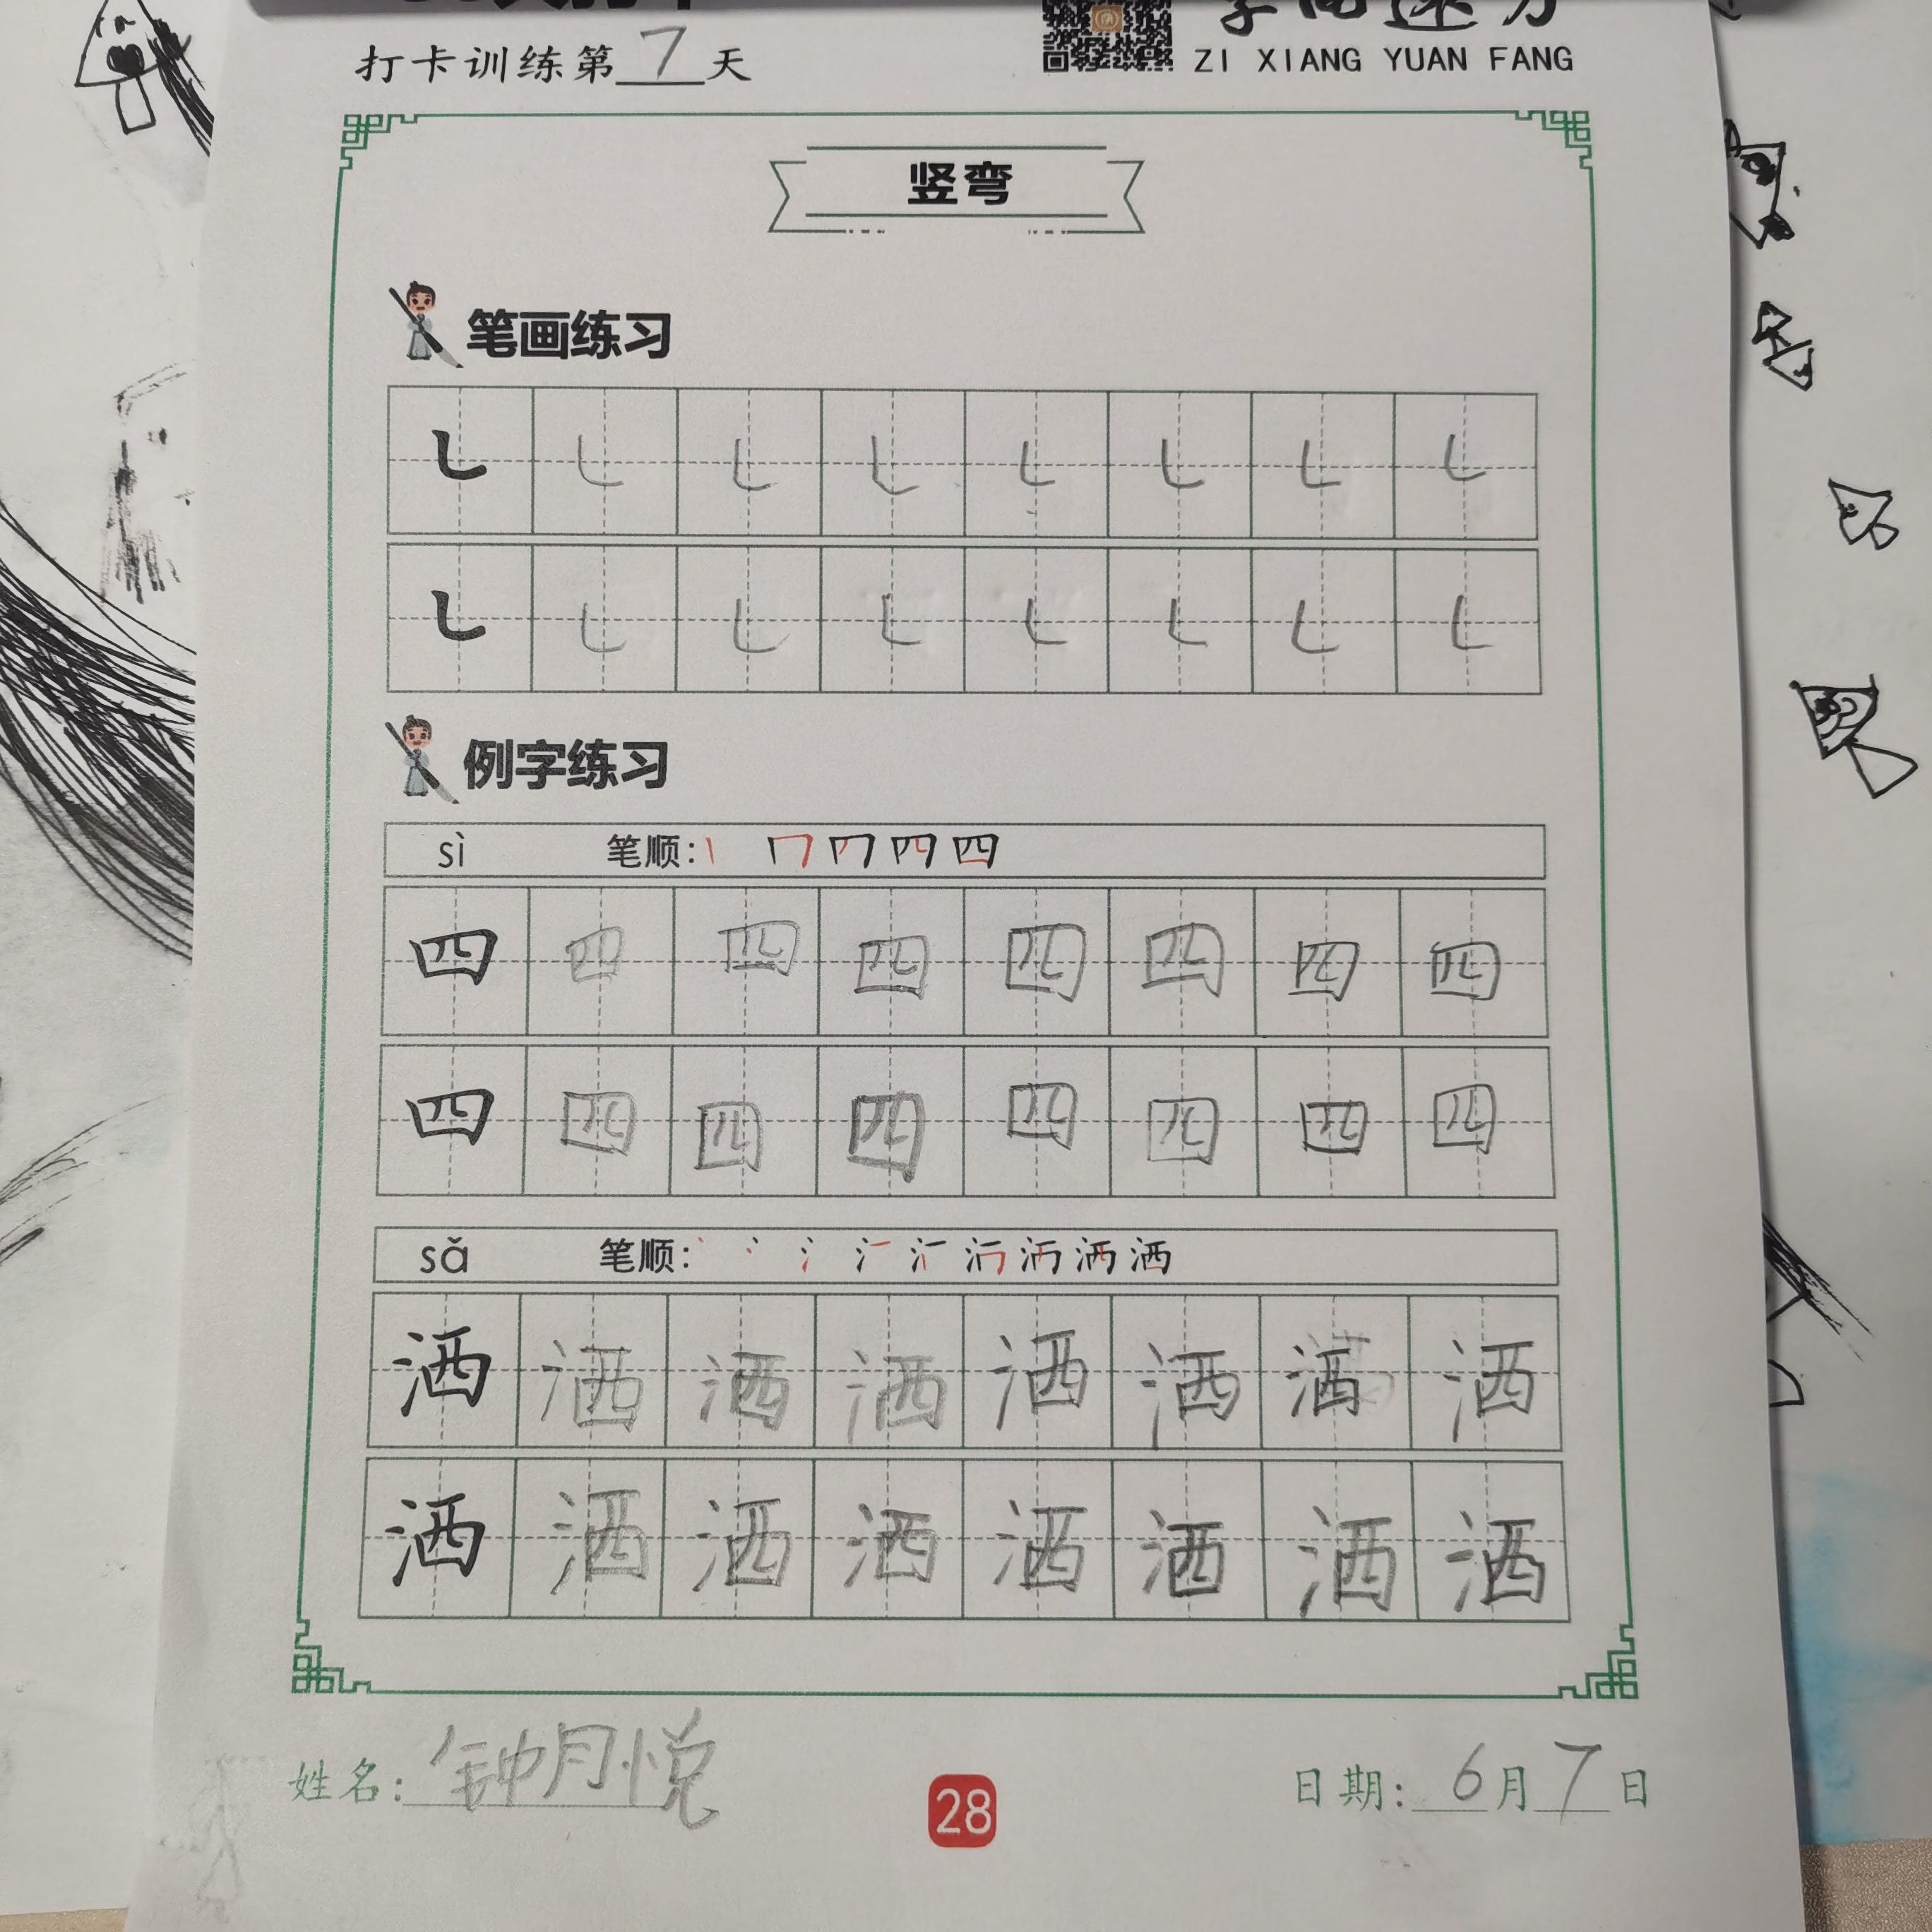 打卡训练第7天
ZI XIANG YUAN FANG
竖弯
笔画练习
㇄ ㇄ ㇄ ㇄ ㇄ ㇄ ㇄ ㇄
㇄ ㇄ ㇄ ㇄ ㇄ ㇄ ㇄ ㇄
例字练习
sì 笔顺: 四
四 四 四 四 四 四 四 四
四 四 四 四 四 四 四 四
sǎ 笔顺: 洒
洒 洒 洒 洒 洒 洒 洒 洒
洒 洒 洒 洒 洒 洒 洒 洒
姓名: 钟月悦
28
日期: 6月7日